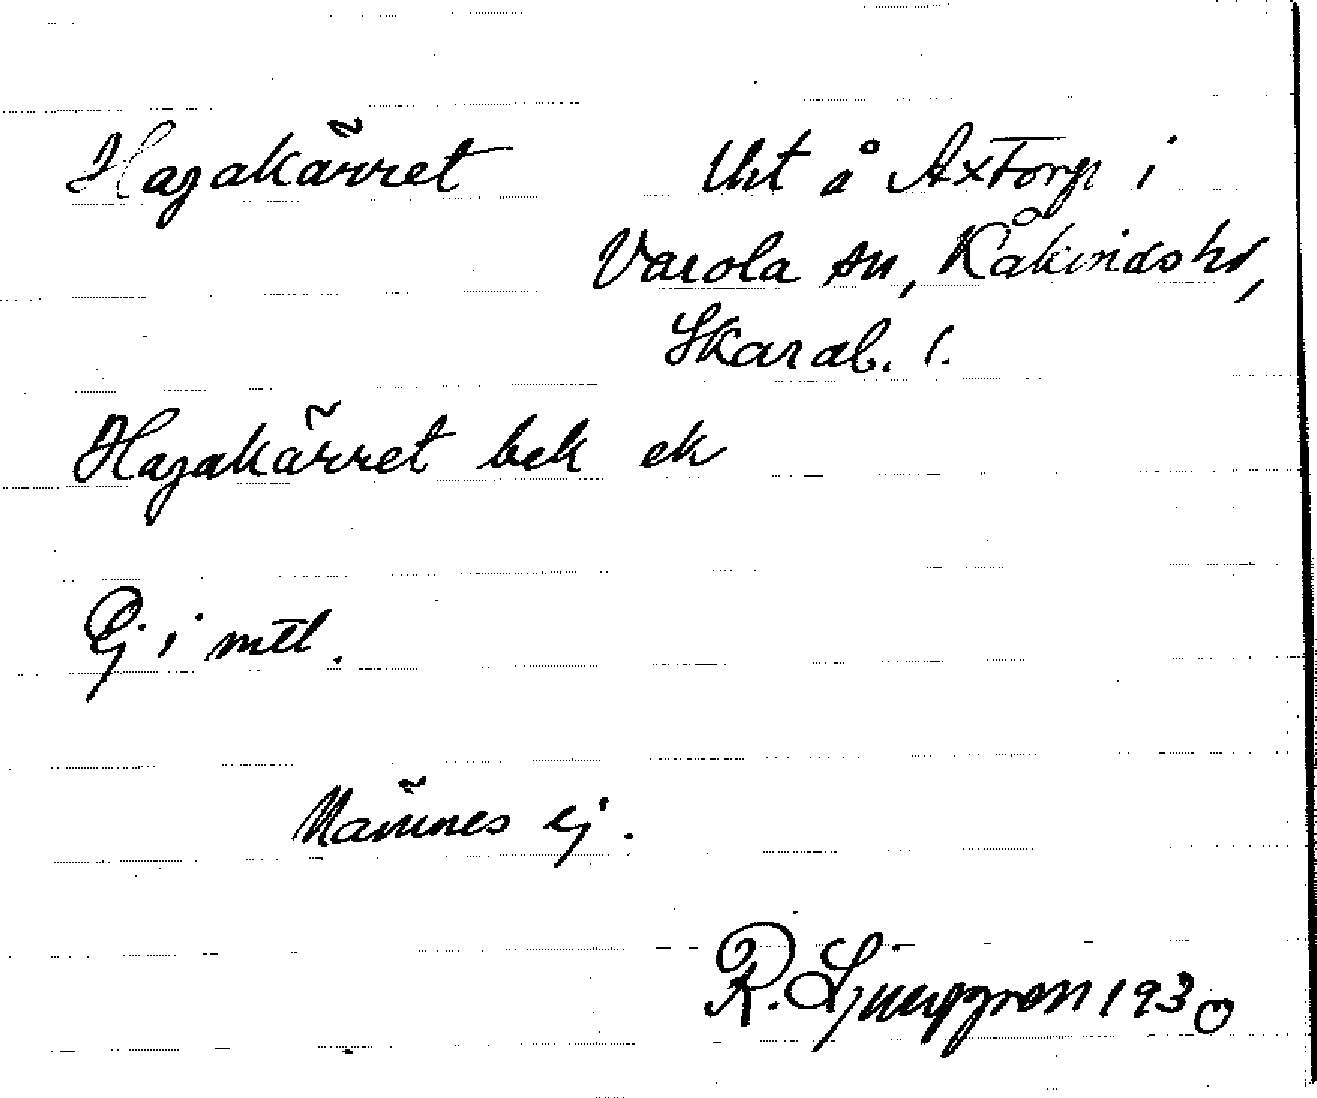 Hagakärret Utt å Axtorp i
Varola sn, Kåkinds hd,
Skarab. l.
Hagakärret bek ek
Ej i mtl.
Kännes ej.
R. Ljunggren 1930